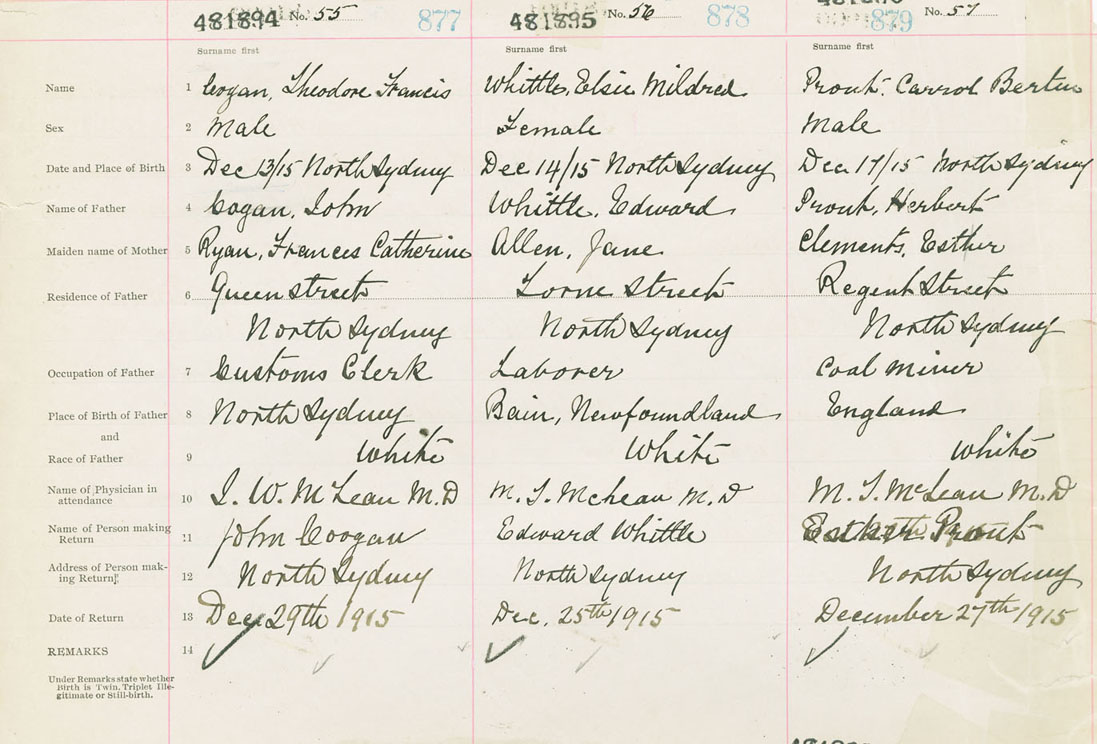 481894 No. 55 877 481895 No. 56 878 879 No. 57
Surname first Surname first Surname first
Name 1 Cogan, Theodore Francis Whittle, Elsie Mildred Prout, Carrol Bertin
Sex 2 Male Female Male
Date and Place of Birth 3 Dec 13/15 North Sydney Dec 14/15 North Sydney Dec 17/15 North Sydney
Name of Father 4 Cogan, John Whittle, Edward Prout, Herbert
Maiden name of Mother 5 Ryan, Frances Catherine Allen, Jane Clements, Esther
Residence of Father 6 Queen street Lorne street Regent Street
North Sydney North Sydney North Sydney
Occupation of Father 7 Customs Clerk Laborer Coal miner
Place of Birth of Father 8 North Sydney Bain, Newfoundland England
and
Race of Father 9 White White White
Name of Physician in
attendance 10 J. W. McLean M.D M. T. McLean M.D M. T. McLean M.D
Name of Person making
Return 11 John Coogan Edward Whittle Esther Prout
Address of Person mak-
ing Return 12 North Sydney North Sydney North Sydney
Date of Return 13 Dec 29th 1915 Dec. 25th 1915 December 27th 1915
REMARKS 14
Under Remarks state whether
Birth is Twin, Triplet Ille-
gitimate or Still-birth.